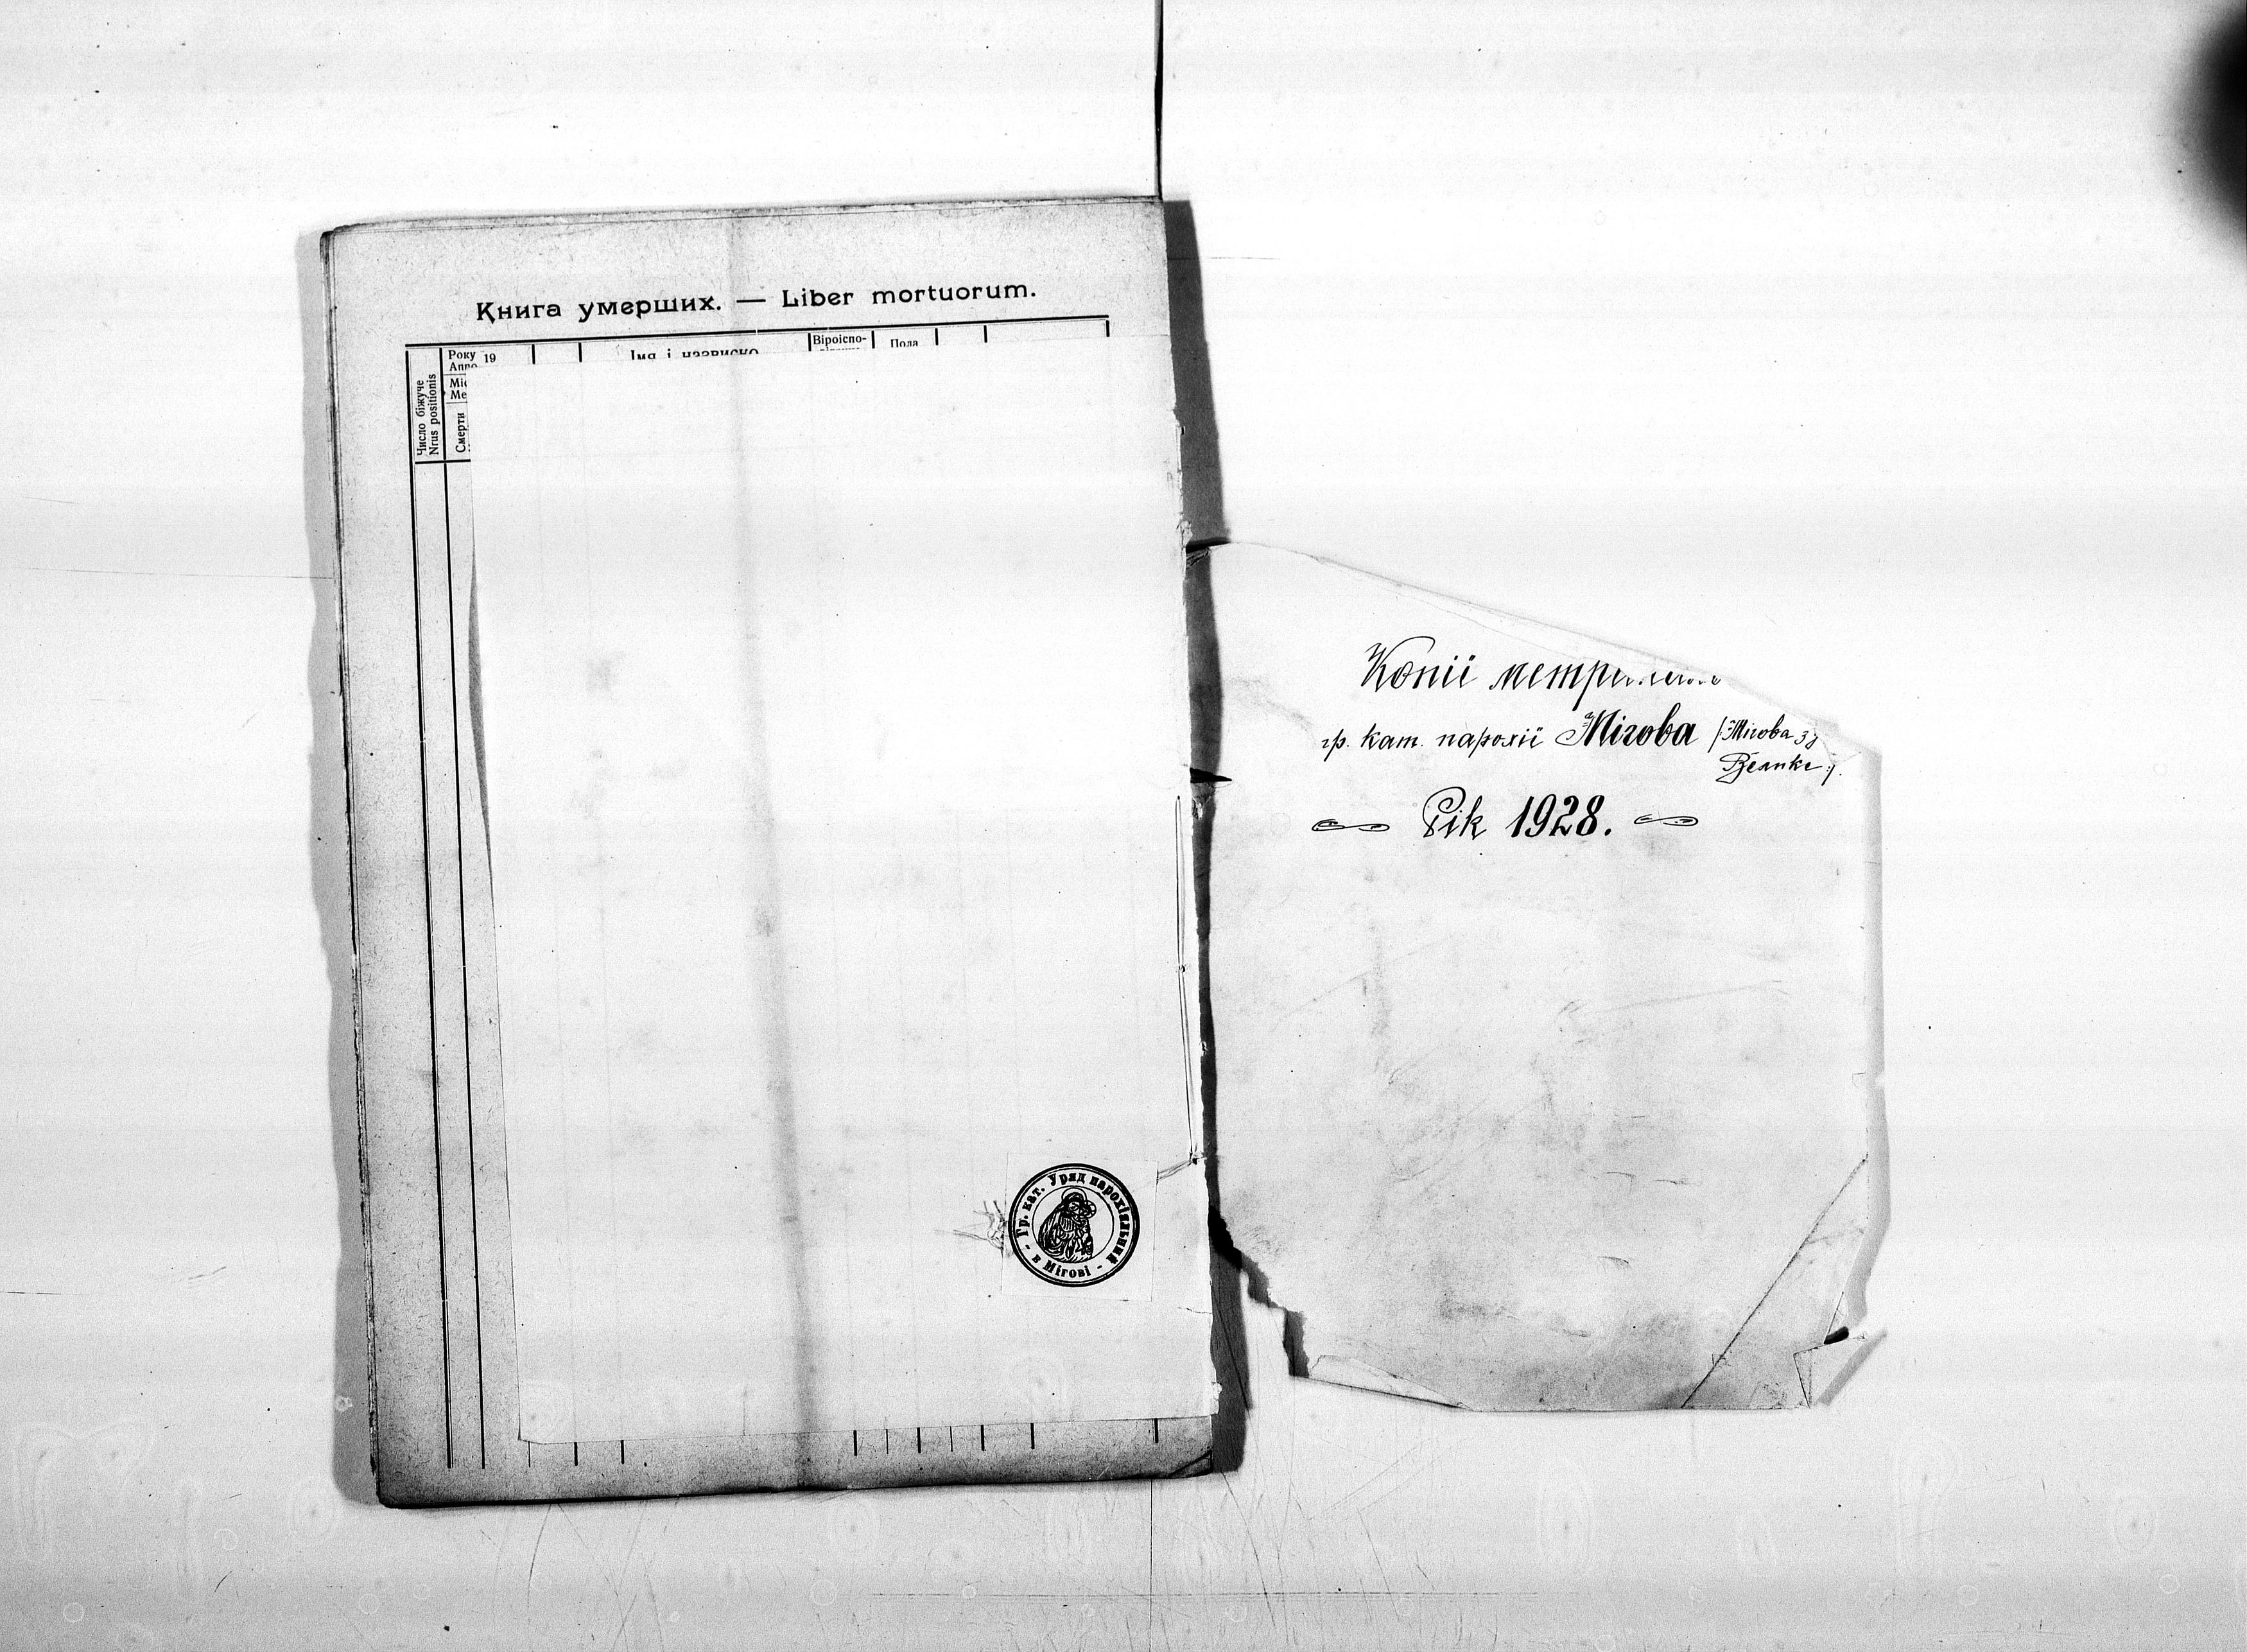 Книга умерших. — Liber mortuorum.
Число біжуче
Nrus positionis
Року 19
Anno
Міс
Me
Смерти
Імя і назвиско
Віроіспо-
Пола
Гр. кат. Уряд парохіяльний
- в Мігові -
Копії
гр. кат. парохії Мігова (Мігова з
Велике
Рік 1928.